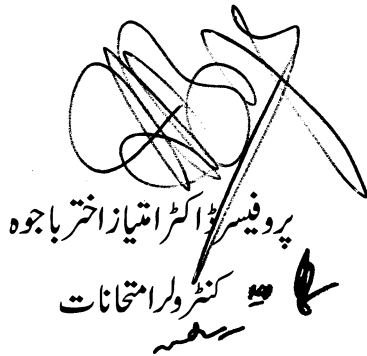 پروفیسر ڈاکٹر امتیاز اختر باجوہ
کنٹرولر امتحانات